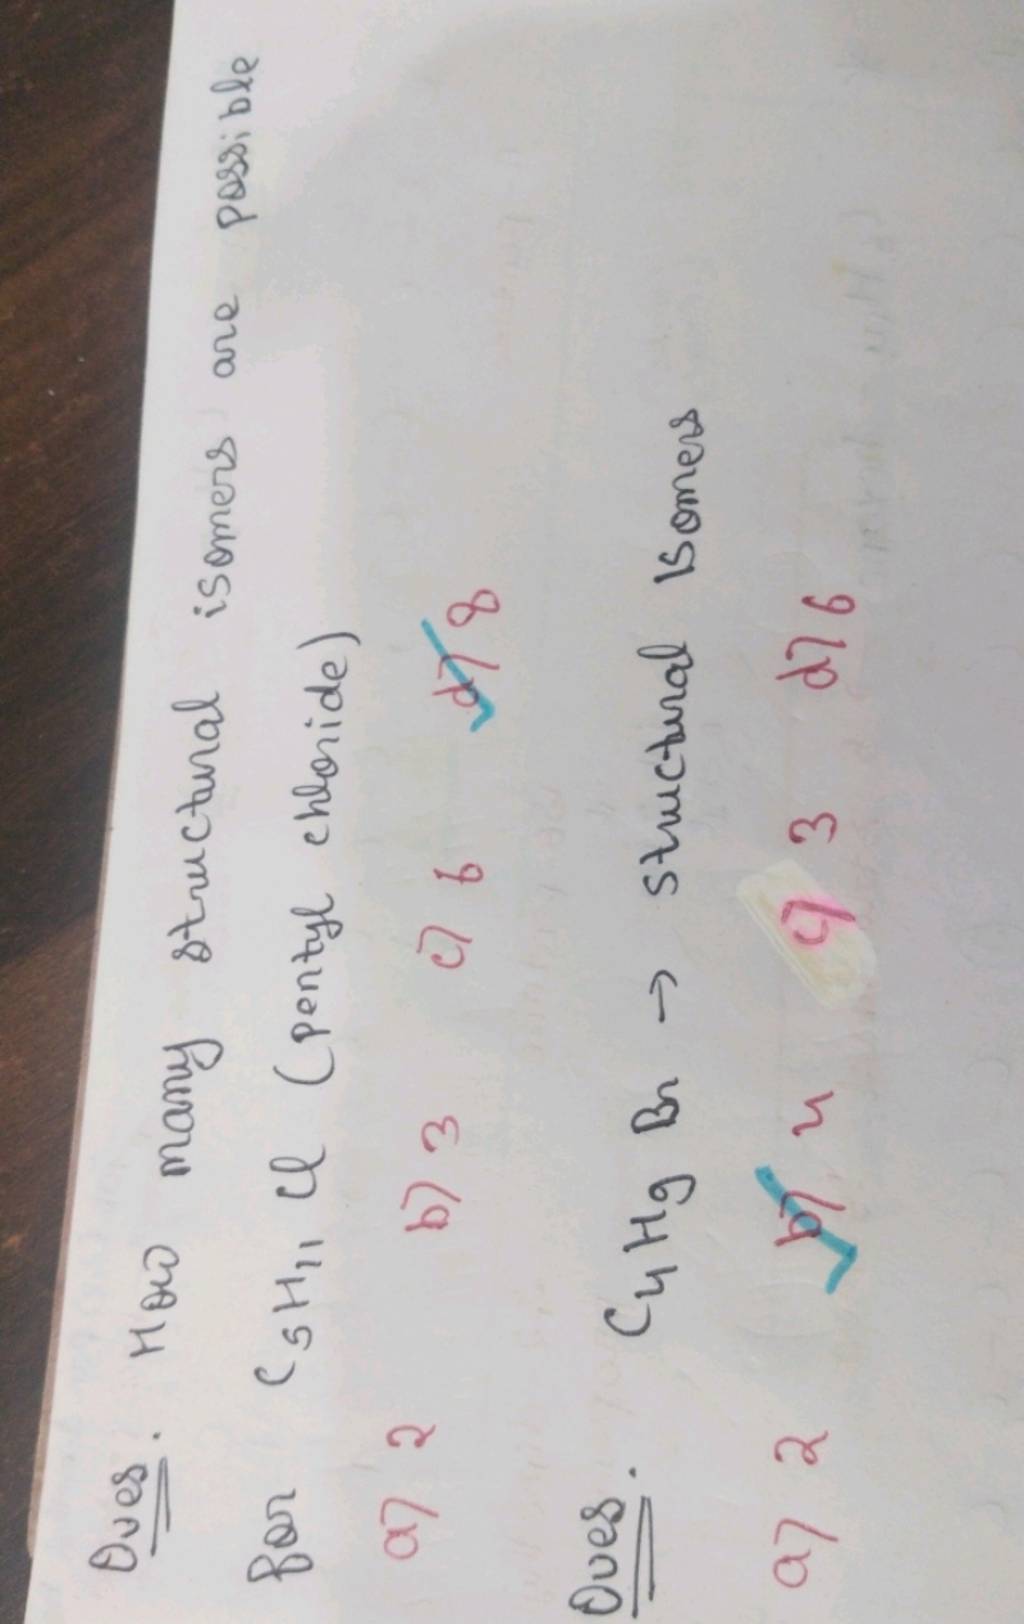 Ques. How many structural isomers are possible
for C5H11 Cl (pentyl chloride)
a) 2 b) 3 c) 6 d) 8
Ques. C4H9 Br → structural isomers
a) 2 b) 4 c) 3 d) 6